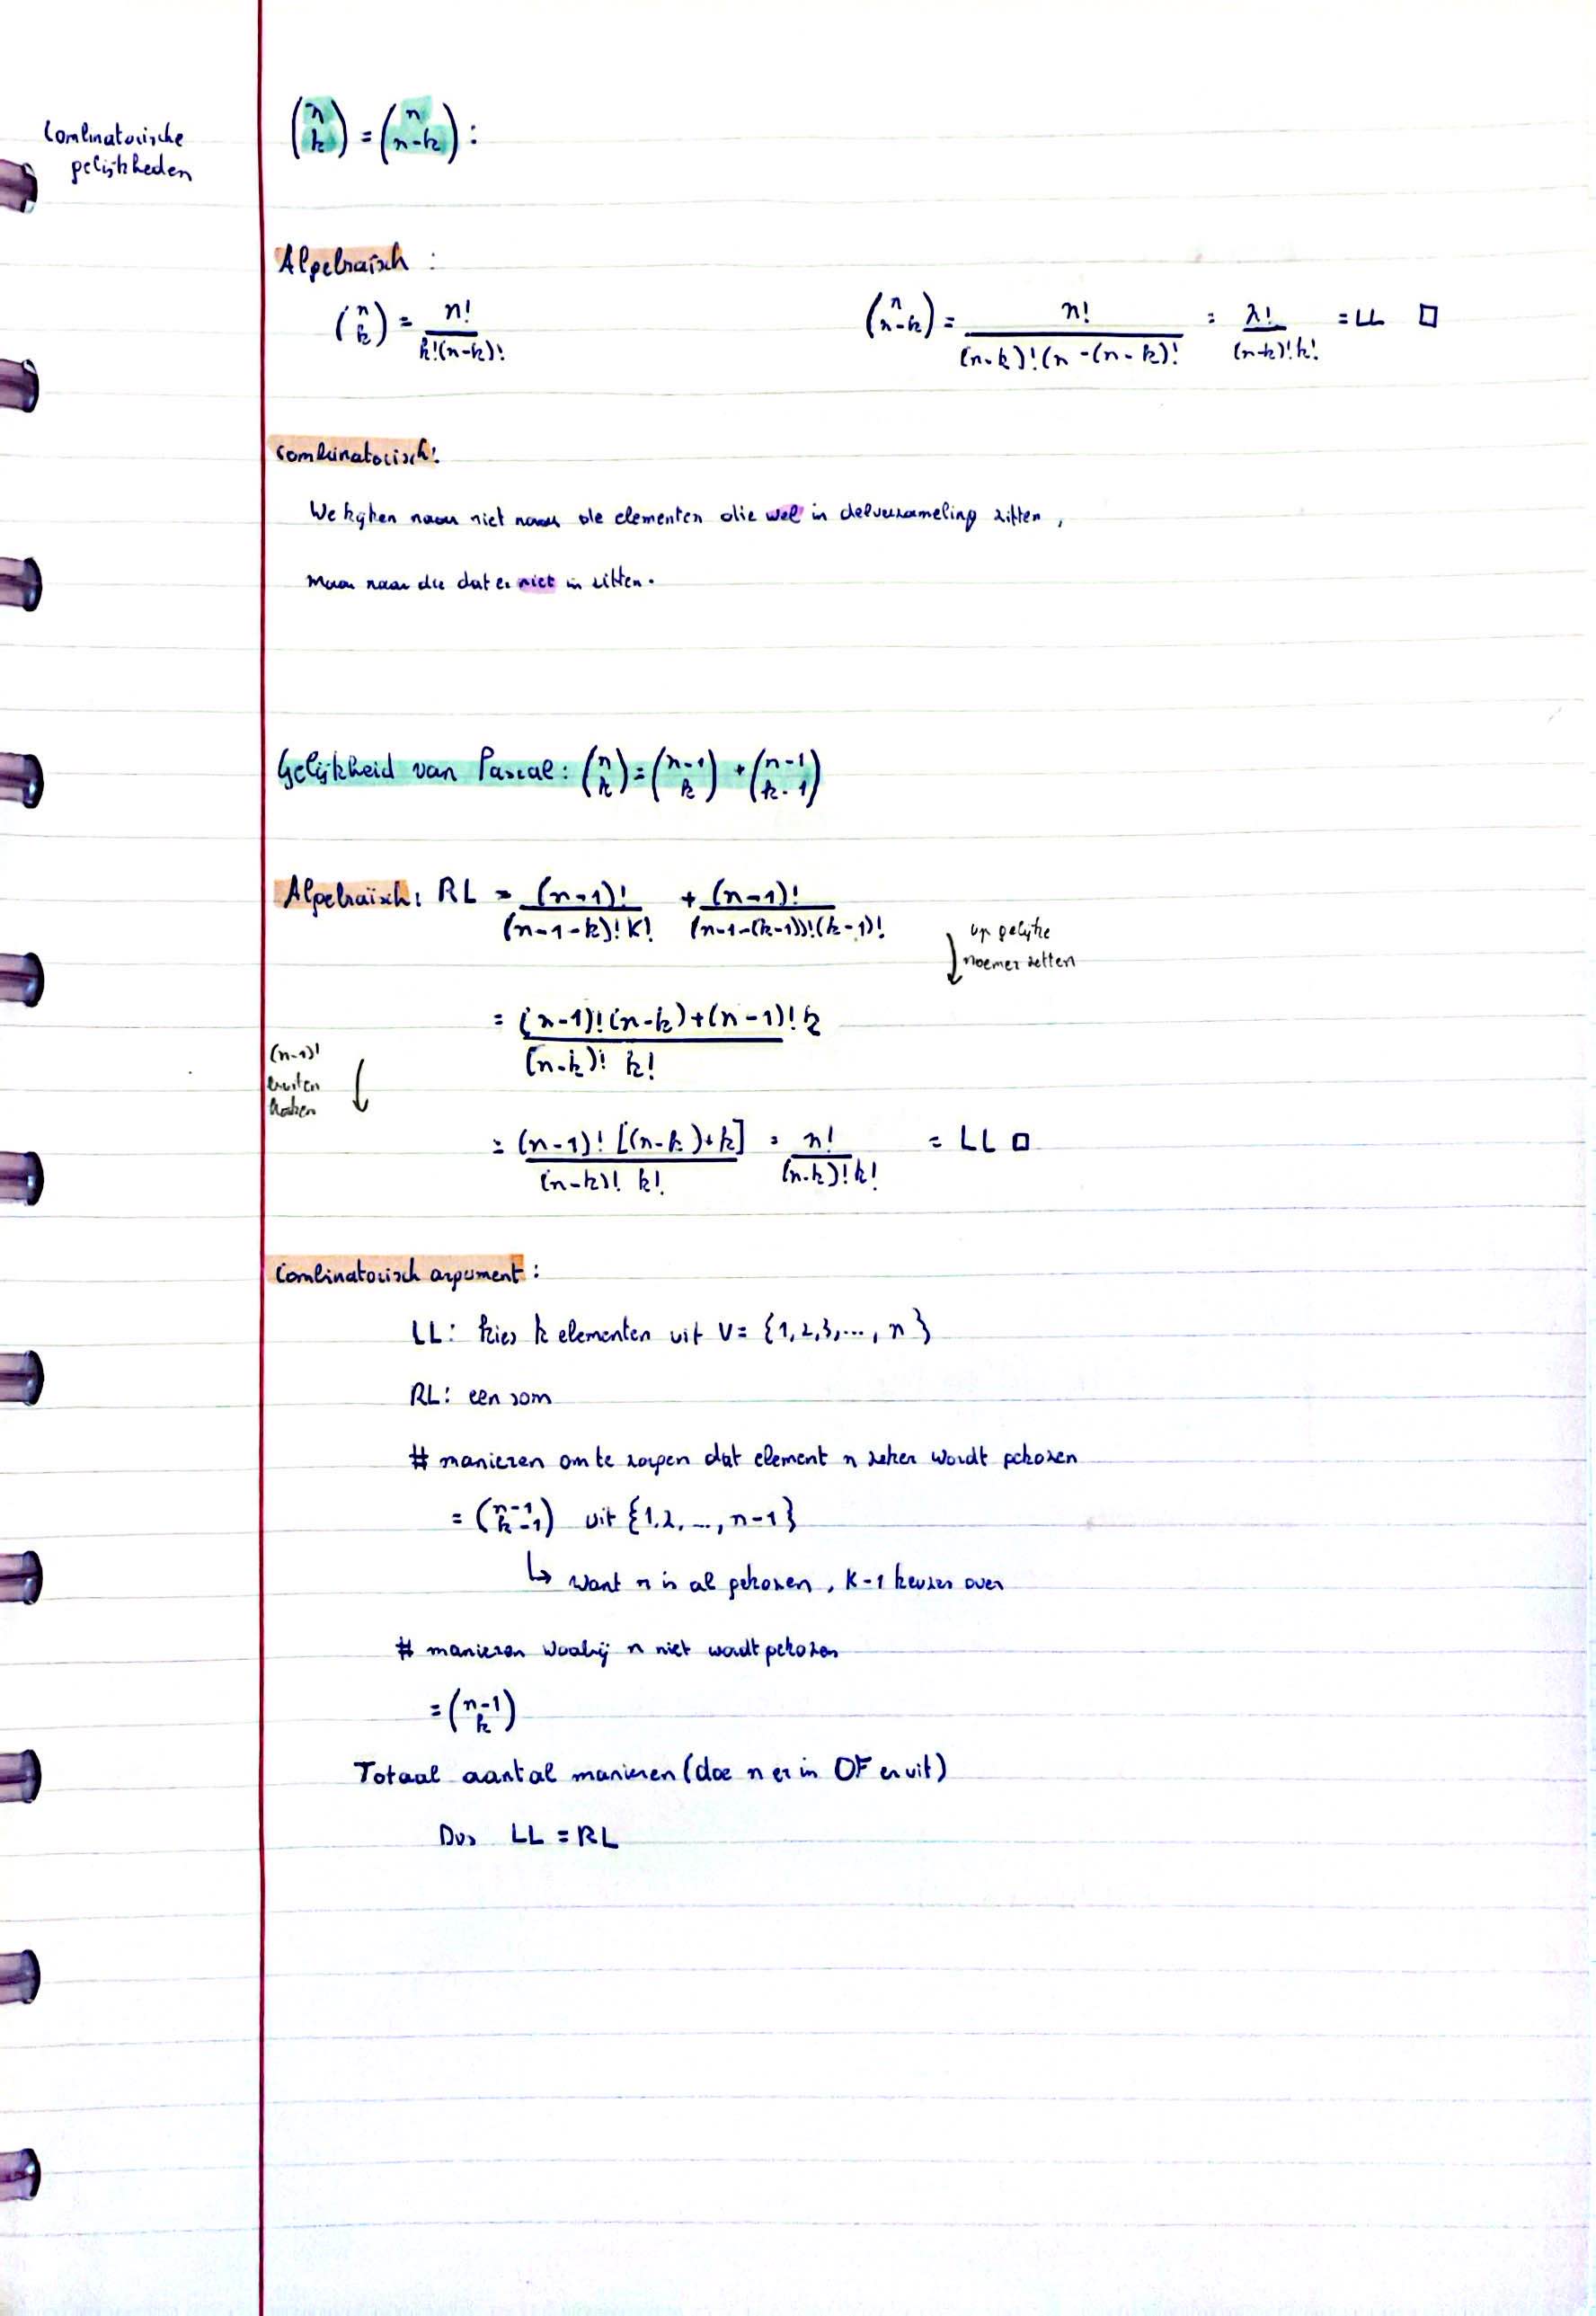 Combinatorische
gelijkheden
(n k) = (n n-k) :
Algebraïsch :
(n k) = n! / k!(n-k)!
(n n-k) = n! / (n-k)!(n-(n-k)! = n! / (n-k)!k! = LL □
Combinatorisch:
We kijken naar niet naar de elementen die wel in delverzameling zitten,
maar naar die dat er niet in zitten.
Gelijkheid van Pascal: (n k) = (n-1 k) + (n-1 k-1)
Algebraïsch: RL = (n-1)! / (n-1-k)! k! + (n-1)! / (n-1-(k-1))!(k-1)!
op gelijke
noemer zetten
= (n-1)!(n-k)+(n-1)!k / (n-k)! k!
(n-1)!
buiten
haken
= (n-1)! [(n-k)+k] / (n-k)! k! = n! / (n-k)!k! = LL □
Combinatorisch argument:
LL: kies k elementen uit V = {1,2,3,..., n}
RL: een som
# manieren om te zorgen dat element n zeker wordt gekozen
= (n-1 k-1) uit {1,2,...,n-1}
↳ want n is al gekozen, k-1 keuzes over
# manieren waarbij n niet wordt gekozen
= (n-1 k)
Totaal aantal manieren (doe n er in OF er uit)
Dus LL = RL